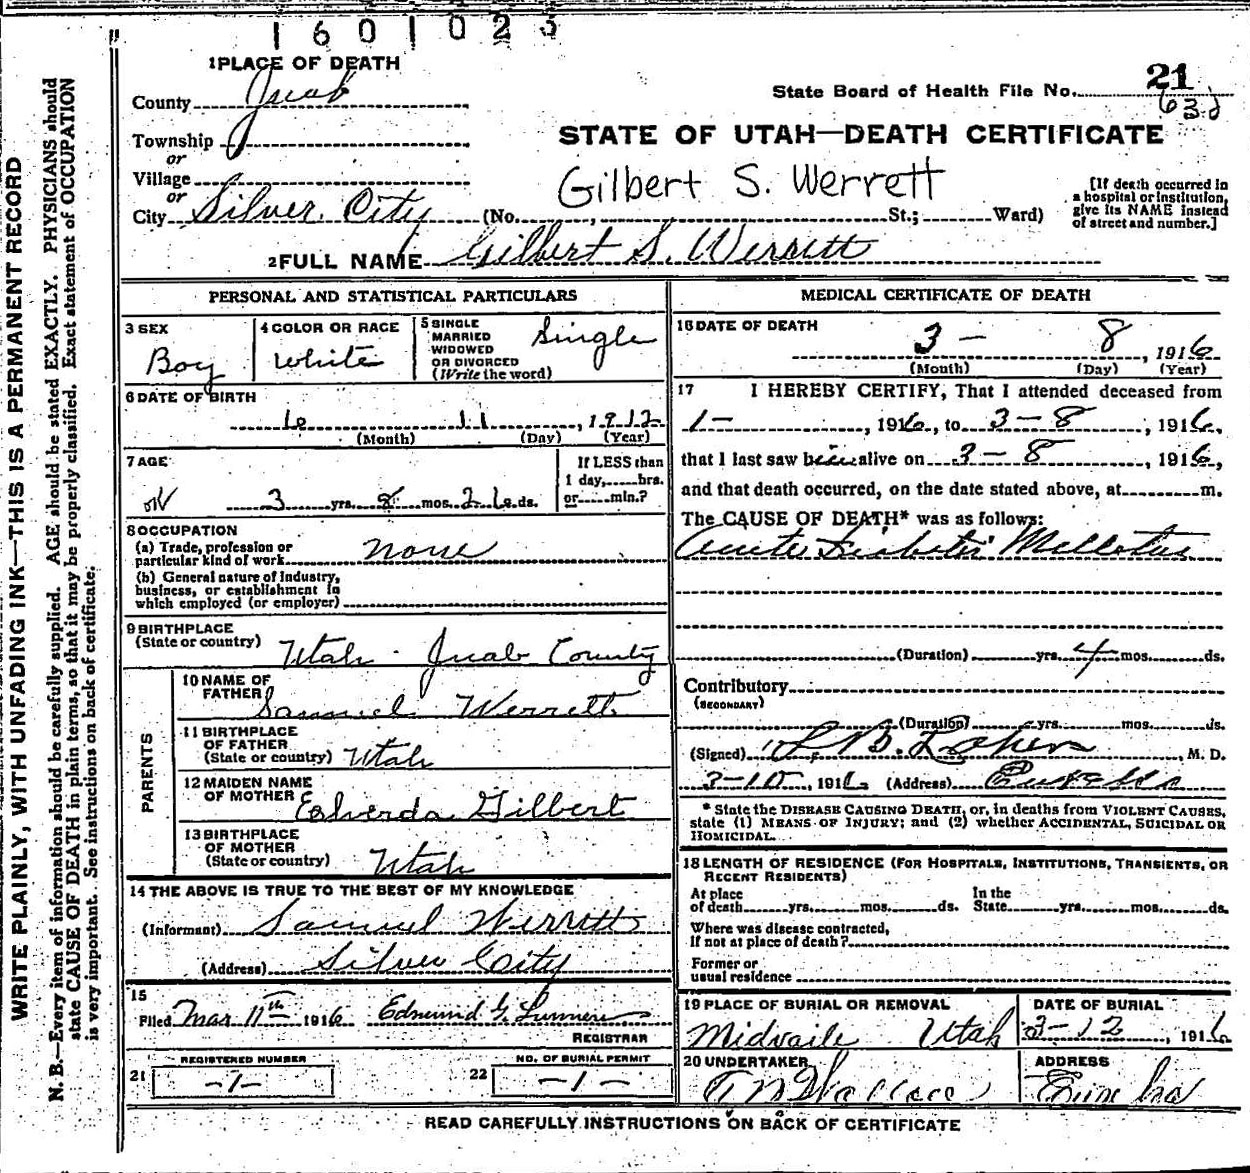 1601023
1 PLACE OF DEATH
County Juab
State Board of Health File No. 21
63
Township
or
STATE OF UTAH—DEATH CERTIFICATE
Village
or
Gilbert S. Werrett
[If death occurred in a hospital or institution, give its NAME instead of street and number.]
City Silver City (No. , St.; Ward)
2 FULL NAME Gilbert S. Werrett
PERSONAL AND STATISTICAL PARTICULARS
3 SEX
Boy
4 COLOR OR RACE
White
5 SINGLE
MARRIED
WIDOWED
OR DIVORCED
(Write the word)
Single
6 DATE OF BIRTH
6 11, 1912
(Month) (Day) (Year)
7 AGE
3 yrs. 8 mos. 26 ds.
If LESS than
1 day, hrs.
or min.?
8 OCCUPATION
(a) Trade, profession or
particular kind of work none
(b) General nature of industry,
business, or establishment in
which employed (or employer)
9 BIRTHPLACE
(State or country) Utah - Juab County
PARENTS
10 NAME OF
FATHER Samuel Werrett
11 BIRTHPLACE
OF FATHER
(State or country) Utah
12 MAIDEN NAME
OF MOTHER Gilbert
13 BIRTHPLACE
OF MOTHER
(State or country) Utah
14 THE ABOVE IS TRUE TO THE BEST OF MY KNOWLEDGE
(Informant) Samuel Werrett
(Address) Silver City
15
Filed Mar 11th 1916 Edmund G.
REGISTRAR
REGISTERED NUMBER
21 -1-
NO. OF BURIAL PERMIT
22 -1-
MEDICAL CERTIFICATE OF DEATH
16 DATE OF DEATH
3 - 8, 1916
(Month) (Day) (Year)
17 I HEREBY CERTIFY, That I attended deceased from
1-, 1916, to 3-8, 1916,
that I last saw him alive on 3-8, 1916,
and that death occurred, on the date stated above, at m.
The CAUSE OF DEATH* was as follows:
Acute Diabetis Mellotus
(Duration) yrs. 4 mos. ds.
Contributory
(SECONDARY)
(Duration) yrs. mos. ds.
(Signed) L. B. , M. D.
3-10, 1916 (Address) Eureka
* State the DISEASE CAUSING DEATH, or, in deaths from VIOLENT CAUSES,
state (1) MEANS OF INJURY; and (2) whether ACCIDENTAL, SUICIDAL OR
HOMICIDAL.
18 LENGTH OF RESIDENCE (FOR HOSPITALS, INSTITUTIONS, TRANSIENTS, OR
RECENT RESIDENTS)
At place
of death yrs. mos. ds.
In the
State yrs. mos. ds.
Where was disease contracted,
If not at place of death?
Former or
usual residence
19 PLACE OF BURIAL OR REMOVAL
Midvaile Utah
DATE OF BURIAL
3-12, 1916
20 UNDERTAKER
Wallace
ADDRESS
Eureka
READ CAREFULLY INSTRUCTIONS ON BACK OF CERTIFICATE
WRITE PLAINLY, WITH UNFADING INK—THIS IS A PERMANENT RECORD
N. B.—Every item of information should be carefully supplied. AGE should be stated EXACTLY. PHYSICIANS should
state CAUSE OF DEATH in plain terms, so that it may be properly classified. Exact statement of OCCUPATION
is very important. See instructions on back of certificate.